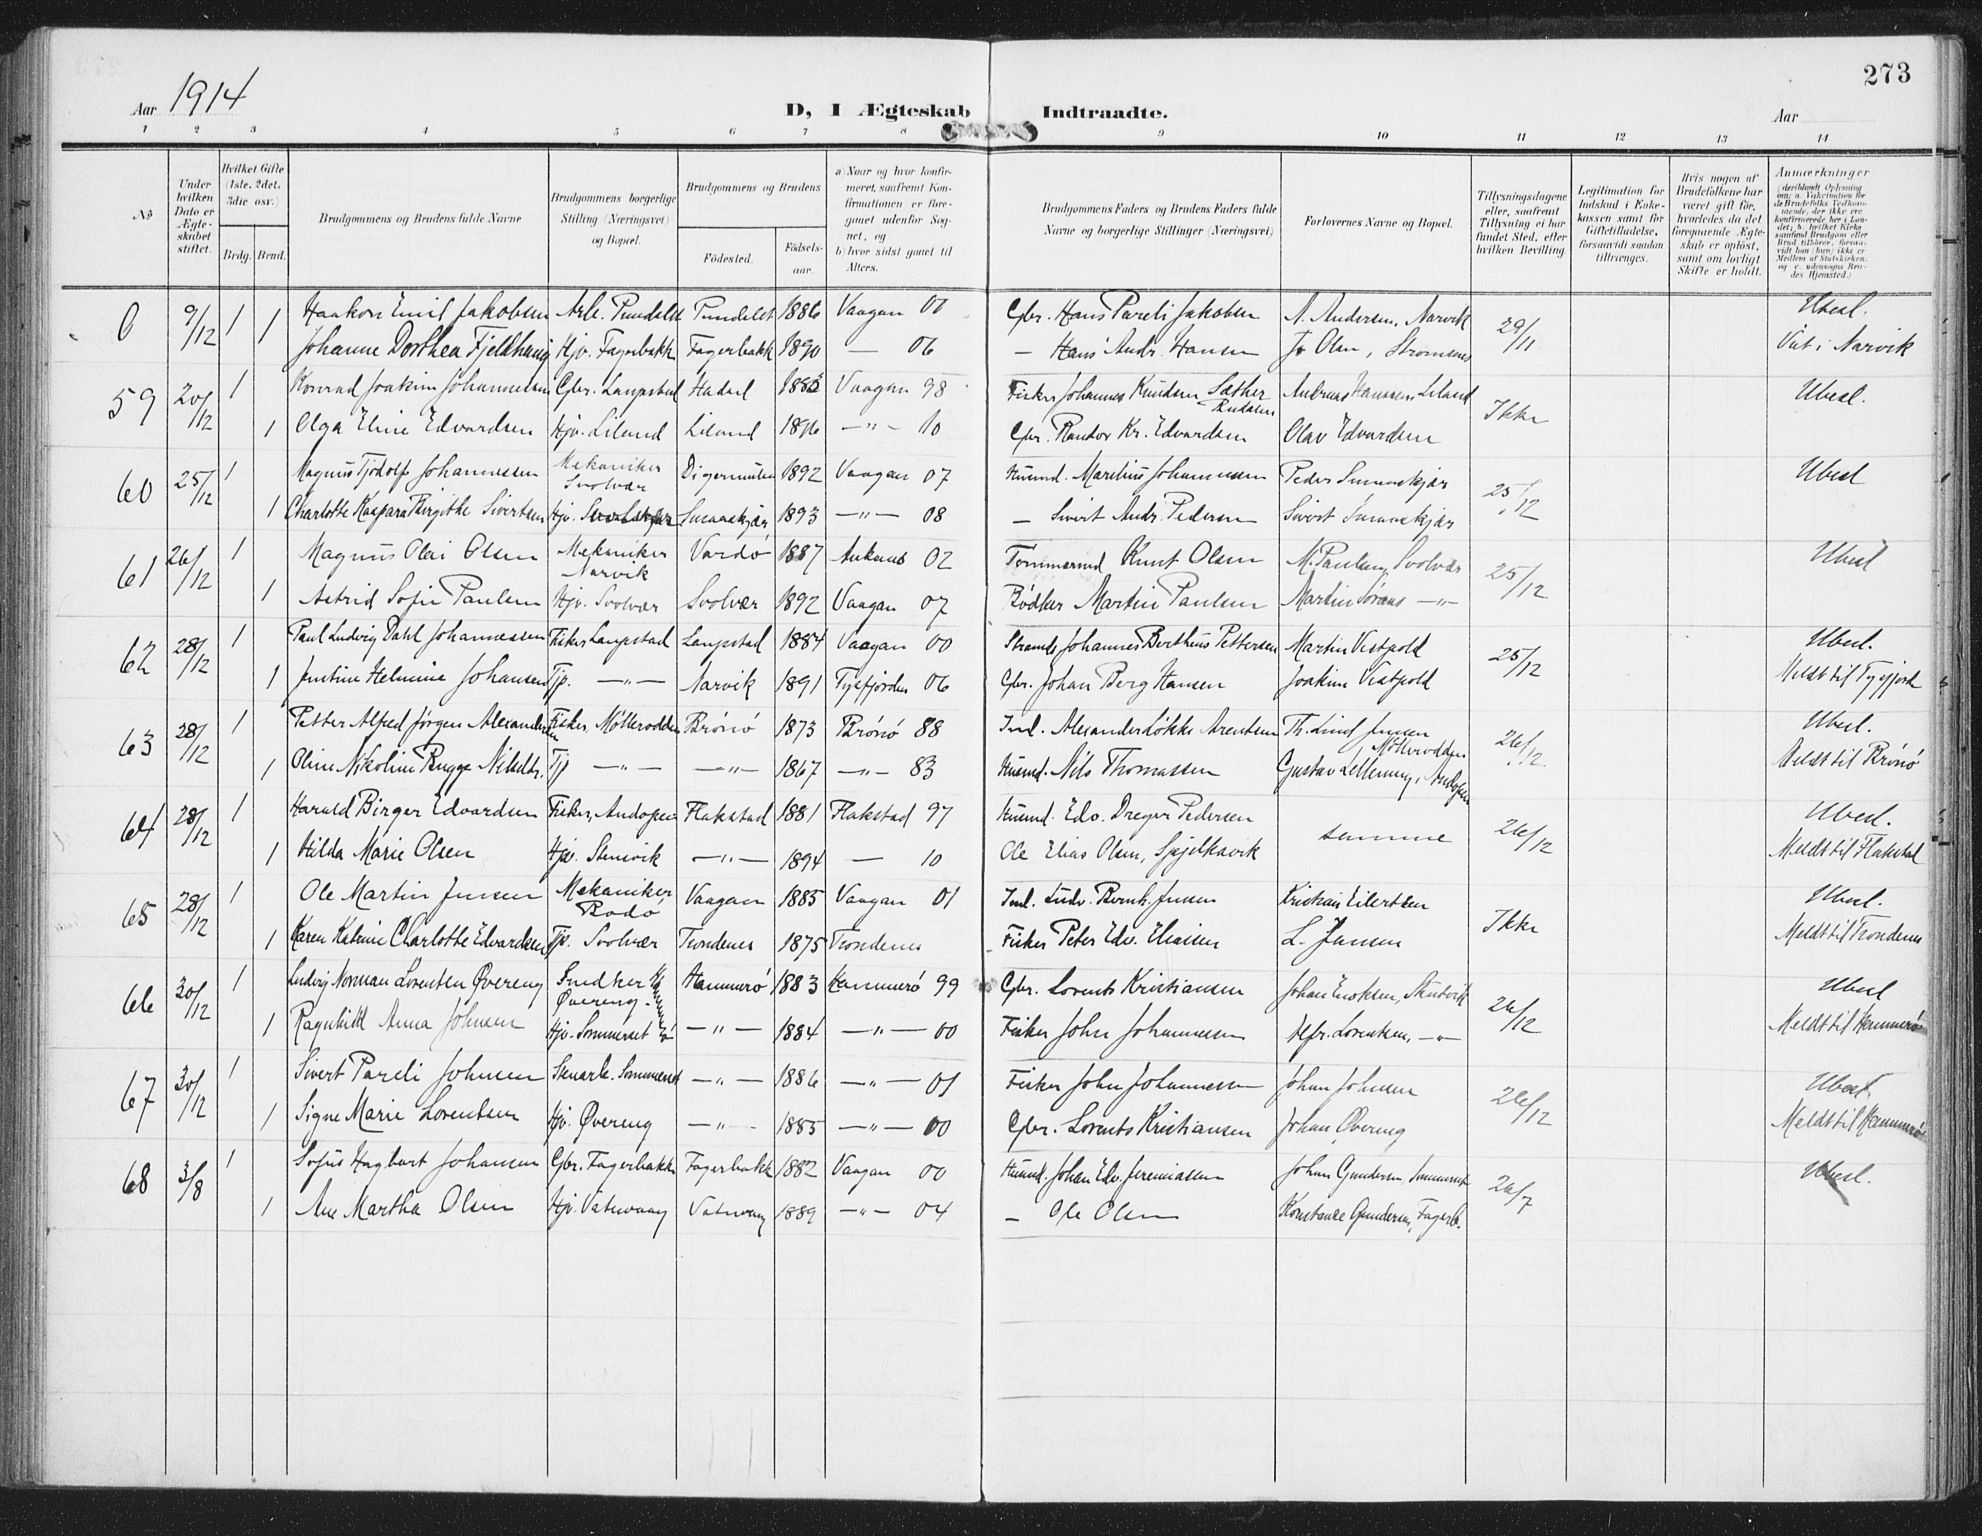 273
Aar 1914
D, I Ægteskab Indtraadte.
Aar
1 2 3 4 5 6 7 8 9 10 11 12 13 14
№
Under hvilken Dato er Ægteskabet stiftet.
Hvilket Gifte (1ste, 2det, 3die osv.)
Brdg. Brud.
Brudgommens og Brudens fulde Navne
Brudgommens borgerlige Stilling (Næringsvei) og Bopæl.
Brudgommens og Brudens
Fødested.
Fødselsaar.
a) Naar og hvor konfirmeret, saafremt Konfirmationen er foregaaet udenfor Sognet, og
b) hvor sidst gaaet til Alters.
Brudgommens Faders og Brudens Faders fulde Navne og borgerlige Stillinger (Næringsvei)
Forlovernes Navne og Bopæl.
Tillysningsdagene eller, saafremt Tillysning ei har fundet Sted, efter hvilken Bevilling.
Legitimation for Indskud i Enkekassen samt for Giftetilladelse, forsaavidt saadan tiltrænges.
Hvis nogen af Brudefolkene har været gift før, hvorledes da det foregaaende Ægteskab er opløst, samt om lovligt Skifte er holdt.
Anmærkninger
0 9/12 1 Haakon Emil Jakobsen Arb. Pundslet Pundslet 1886 Vaagan 01 Gbr. Hans Pareli Jakobsen A. Andersen, Narvik 29/11 Ubesl.
1 Johanne Dorthea Fjeldhaug Hjv. Fagerbakk Fagerbakk 1890 — 06 — Hans Andr. Hansen Jo Olsen, Strømsnes Viet i Narvik
59 20/12 1 Konrad Joakim Johannesen Gbr. Laupstad Hadsel 1883 Vaagan 98 Fisker Johannes Knudsen Sæther Andreas Hanssen Liland Ikke Ubesl.
1 Olga Eline Edvardsen Hjv. Liland Liland 1896 —"— 10 Gbr. Randor Kr. Edvardsen Olav Edvardsen
60 25/12 1 Magnus Tjodolf Johannessen Mekaniker Svolvær Digermulen 1892 Vaagan 07 Husmd. Marelius Johannessen Peder Smaaskjær 25/12 Ubesl
1 Charlotte Kaspara Birgithe Sivertsen Hjv. Smaaskjær 1893 —"— 08 — Sivert Andr. Pedersen Sivert Smaaskjær
61 26/12 1 Magnus Olai Olsen Mekaniker Narvik Vardø 1887 Ankenes 02 Tømmermd Knut Olsen M. Paulsen, Svolvær 25/12 Ubesl
1 Astrid Sofie Paulsen Hjv. Svolvær Svolvær 1892 Vaagan 07 Bødker Martin Paulsen Martin Søraas —"—
62 28/12 1 Paul Ludvig Dahl Johannessen Fisker Laupstad Laupstad 1884 Vaagan 00 Strands. Johannes Bertheus Pettersen Martin Vestpold 25/12 Ubesl.
1 Justine Helmine Johansen Tjp. —"— Narvik 1891 Tysfjorden 06 Gbr. Johan Berg Hansen Joakim Vestpold Meldt til Tysfjord
63 28/12 1 Petter Alfred Jørgen Alexandersen Fisker, Møllerodden Brønø 1873 Brønø 88 Ind. Alexander Løkke Arentsen Th. Lind Jensen Møllerodden 26/12 Ubesl.
1 Oline Nikoline Bugge Nilsdtr. Tjp —"— —"— 1867 —"— 83 Husmd. Nils Thomassen Gustav Ellerning, Andopen Meldt til Brønø
64 28/12 1 Harald Birger Edvardsen Fisker, Andopen Flakstad 1881 Flakstad 97 Husmd. Edv. Dreyer Pedersen samme 26/12 Ubesl.
1 Hilda Marie Olsen Hjv. Stensvik —"— 1894 — 10 Ole Elias Olsen, Skjelkavik Meldt til Flakstad
65 28/12 1 Ole Martin Jensen Mekaniker, Bodø Vaagan 1885 Vaagan 01 Ind. Ludv. Bernh. Jensen Kristian Eilertsen Ikke Ubesl.
1 Karen Katrine Charlotte Edvardsen Tjp. Svolvær Trondenes 1875 Trondenes Fisker Peter Edv. Eliassen L. Jensen Meldt til Trondenes
66 30/12 1 Ludvig Norman Lorentsen Øvereng Snedker Øvereng Hammerø 1883 Hammerø 99 Gbr. Lorents Kristiansen Johan Enoksen, Skutvik 26/12 Ubesl
1 Ragnhild Anna Johnsen Hjv. Sommerset —"— 1884 —"— 00 Fisker John Johannessen Alfr. Lorentsen, —"— Meldt til Hammerø
67 30/12 1 Sivert Pareli Johnsen Stenarb. Sommerset —"— 1886 —"— 01 Fisker John Johannessen Johan Johnsen 26/12 Ubesl.
1 Signe Marie Lorentsen Hjv. Øvereng —"— 1885 —"— 00 Gbr. Lorents Kristiansen Johan Øvereng Meldt til Hammerø
68 3/8 1 Sofus Hagbart Johansen Gbr. Fagerbakk Fagerbakk 1882 Vaagan 00 Husmd. Johan Edv. Jeremiassen Johan Gundersen, Sommerset 26/7 Ubesl.
1 Ane Martha Olsen Hjv. Vatervaag Vatervaag 1889 —"— 04 — Ole Olsen Konstanse Gundersen, Fagerb.